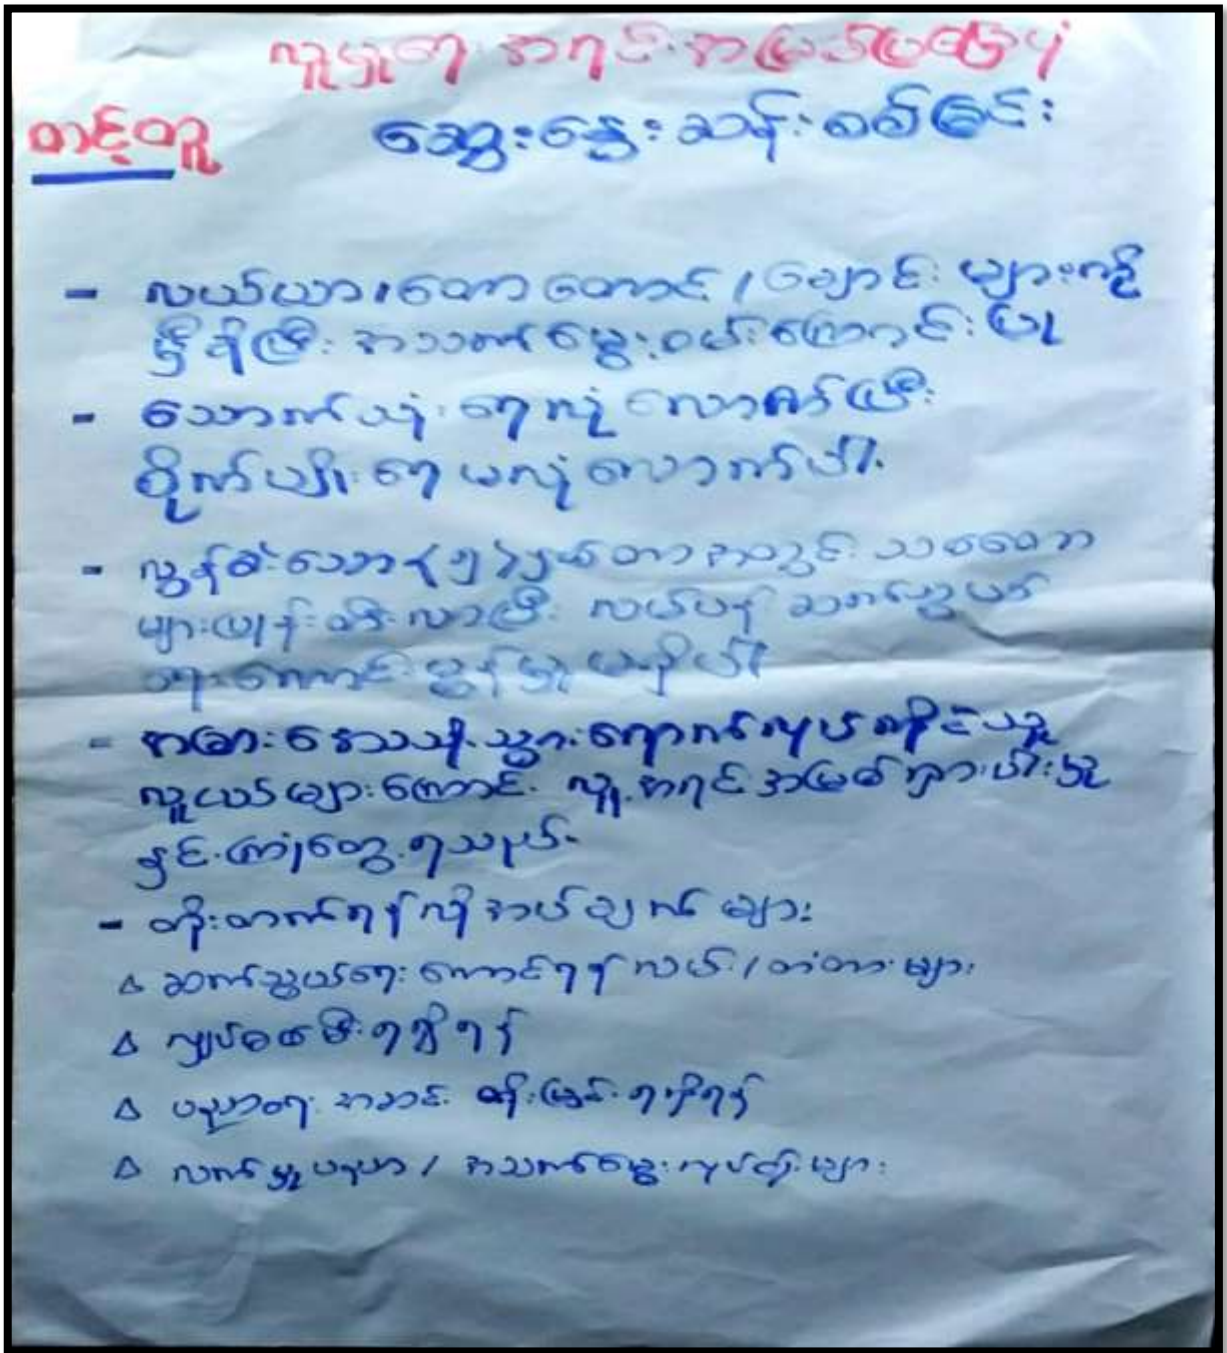 လူမှုရေး အရင်းအမြစ်ပြမြေပုံ
တင့်တူ ဆွေးနွေးဆန်းစစ်ခြင်း
- လယ်ယာ / တောတောင် / ချောင်း များကို
မှီခိုပြီး အသက်မွေးဝမ်းကျောင်းပြု
- သောက်သုံးရေလုံလောက်ပြီး
စိုက်ပျိုးရေမလုံလောက်ပါ။
- လွန်ခဲ့သော (၅) နှစ်တာအတွင်း သစ်တော
များပြုန်းတီးလာပြီး လယ်ပန် ဆက်သွယ်
ရေးကောင်းမွန်မှုမရှိပါ
- အခြားဒေသသို့သွားရောက်လုပ်ကိုင်သူ
လူငယ်များကြောင့် လူ့အရင်းအမြစ်ရှားပါးမှု
နှင့်ကြုံတွေ့ရသည်။
- တိုးတက်ရန်လိုအပ်ချက်များ
∆ ဆက်သွယ်ရေးကောင်ရန် လမ်း / တံတားများ
∆ လျှပ်စစ်မီးရရှိရန်
∆ ပညာရေး အဆင့် တိုးမြှင့်ရရှိရန်
∆ လက်မှုပညာ / အသက်မွေးလုပ်ငန်းများ